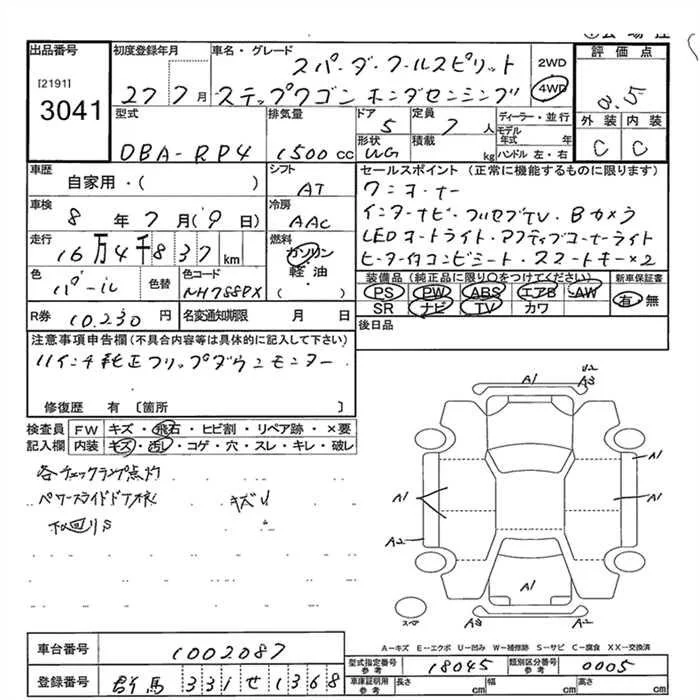 出品番号
[2191]
3041
初度登録年月
27 7月
車名・グレード
スパーダ・クールスピリット
ステップワゴン ホンダセンシング
2WD
4WD
評価点
3.5
外装 内装
C C
型式
DBA-RP4
排気量
1500 cc
ドア
5
定員
7 人
形状
WG
積載
kg
ディーラー・並行
モデル
年式 年
ハンドル 左・右
車歴
自家用・( )
シフト
AT
車検
8 年 7 月 (9 日)
冷房
AAC
走行
16万4千837 km
燃料
ガソリン
軽油
・( )
色
パール
色替
色コード
NH788PX
R券 10,230 円
名変通知期限 月 日
セールスポイント (正常に機能するものに限ります)
ワンオーナー
インターナビ・フルセグTV・Bカメラ
LEDオートライト・アクティブコーナーライト
ヒーター付コンビシート・スマートキー×2
装備品(純正品に限り○をつけてください)
PS PW ABS エアB AW
SR ナビ TV カワ
新車保証書
有・無
後日品
注意事項申告欄(不具合内容等は具体的に記入して下さい)
11インチ純正フリップダウンモニター
修復歴 有 〔箇所 〕
検査員
記入欄
FW キズ・飛石・ヒビ割・リペア跡・×要
内装 キズ・汚レ・コゲ・穴・スレ・キレ・破レ
各チェックランプ点灯
パワースライドドア
キズU
下回りS
A1
U2
A3
A1
A1
A1
A2
A1
A3
A2
スペア
A…キズ E…エクボ U…凹み W…補修跡 S…サビ C…腐食 XX…交換済
車台番号
1002087
登録番号
群馬 331 せ 1368
型式指定番号
参考
18045
類別区分番号
参考
0005
車庫証明用
参考
長さ cm
幅 cm
高さ cm